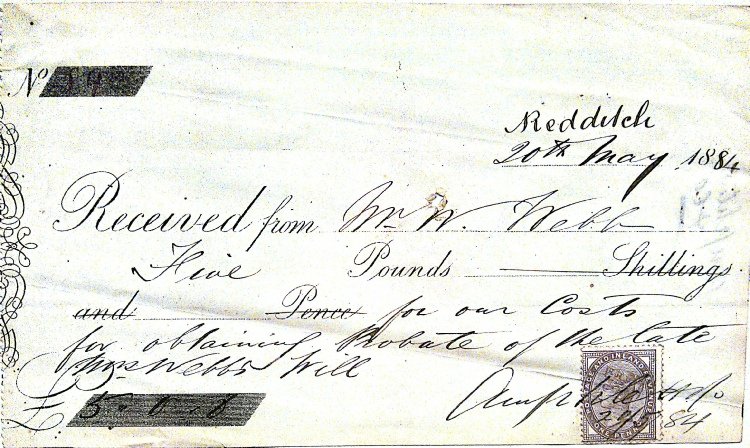 No
Redditch
20th May 1884
Received from Mr W. Webb
Five Pounds Shillings
and Pence for our Costs
for obtaining Probate of the late
Mrs Webb's Will
£5-0-0